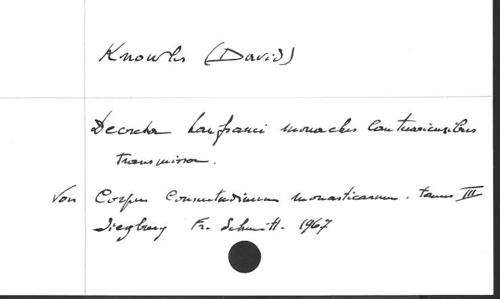 Knowles (David)
Decreta Lanfranci monachis Cantuariensibus
transmissa.
Voir Corpus Consuetudinum monasticarum. tomus III
Siegburg Fr. Schmitt. 1967